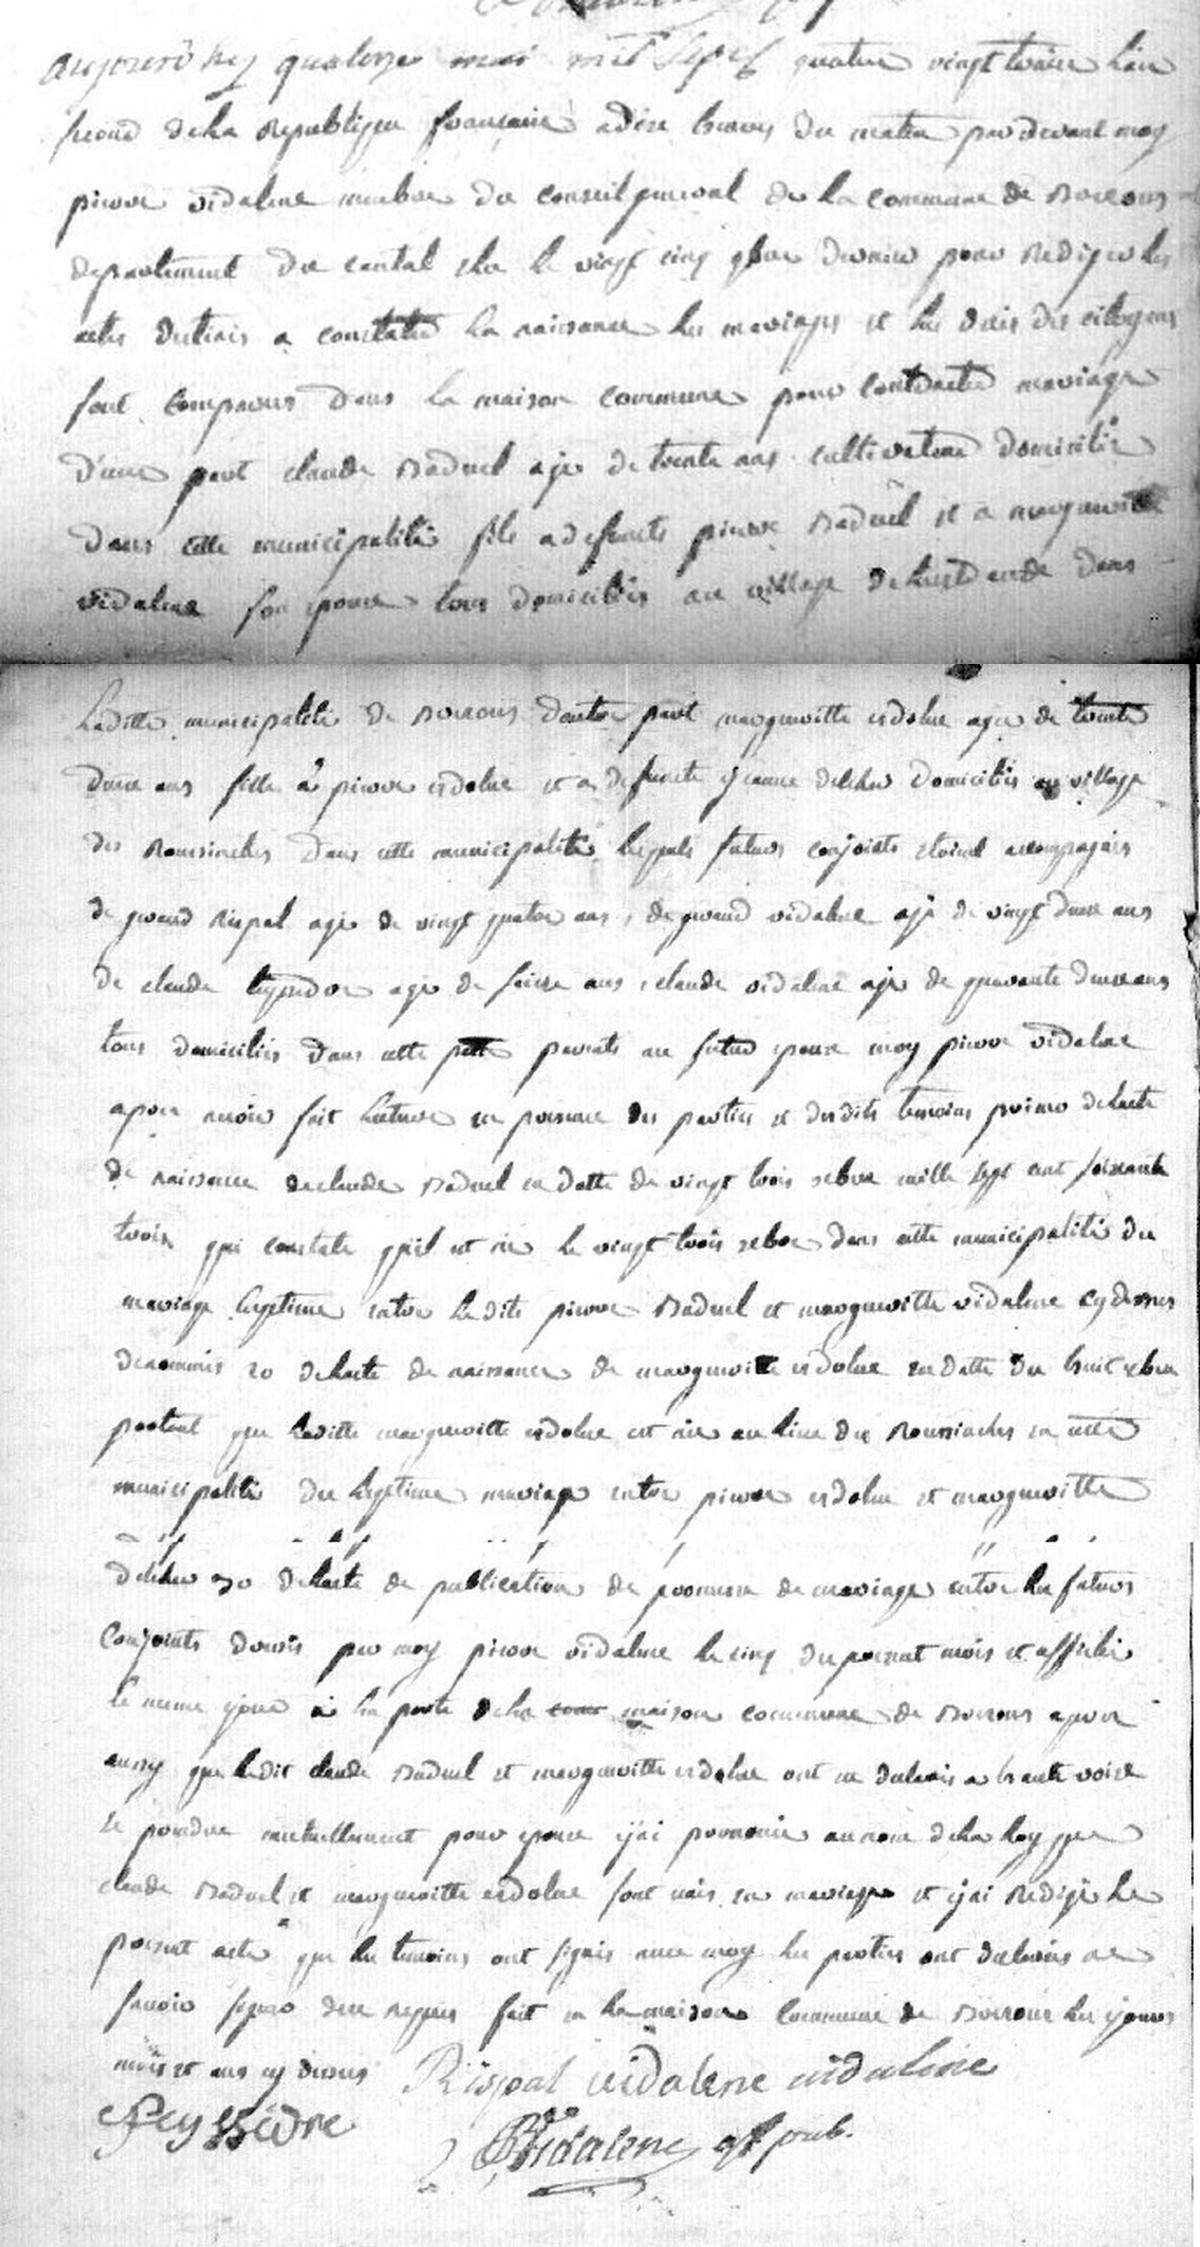 aujourd'huy quatorze mai mil sept quatre vingt treize l'an
second de la republique française a dix heures du matin par devant moy
pierre vidalene membre du conseil general de la commune de
departement du cantal elu le vingt cinq 9bre dernier pour rediger les
actes destinés a constater la naissance les mariages et les decés des citoyens
sont comparus dans la maison commune pour contracter mariage
d'une part claude Maduel age de trente ans cultivateur domicilié
dans cette municipalité fils a defunts pierre Maduel et a marguerite
vidalene son epouse tous domiciliés au village de dans
laditte municipalité de d'autre part margueritte vidalene agee de trente
deux ans fille à pierre vidalene et a defunte jeanne delcher domiciliés au village
des dans cette municipalité lesquels futurs conjoints etoient accompagnés
de geraud Rispal agé de vingt quatre ans, de geraud vidalene agé de vingt deux ans
de claude teyssedre agé de seize ans, claude vidalene agé de quarante deux ans
tous domiciliés dans cette parents au futur epoux moy pierre vidalene
apres avoir fait lecture en presence des parties et desdits temoins primo de lacte
de naissance de claude Maduel en datte du vingt trois xbre mille sept cent soixante
trois qui constate qu'il est né le vingt trois xbre dans cette municipalité du
mariage legitime entre ledits pierre Maduel et margueritte vidalene cy dessus
denommés 2o de lacte de naissance de margueritte vidalene en datte du huit xbre
portant que laditte margueritte vidalene est née au lieu des en cette
municipalité du legitime mariage entre pierre vidalene et margueritte
delcher 3o de lacte de publication de promesse de mariage entre les futurs
conjoints dressé par moy pierre vidalene le cinq du present mois et affiché
le meme jour à la porte de la maison commune de apres
aussy que ledit claude Maduel et margueritte vidalene ont eu declaré a haute voix
se prendre mutuellement pour epoux j'ai prononcé au nom de la loy que
claude Maduel et margueritte vidalene sont unis en mariage et j'ai redigé le
present acte que les temoins ont signés avec moy les parties ont declarés ne
savoir signer de ce requis fait en la maison commune de les jours
mois et ans cy dessus Rispal vidalene vidalene
teyssèdre
Vidalene off pub.